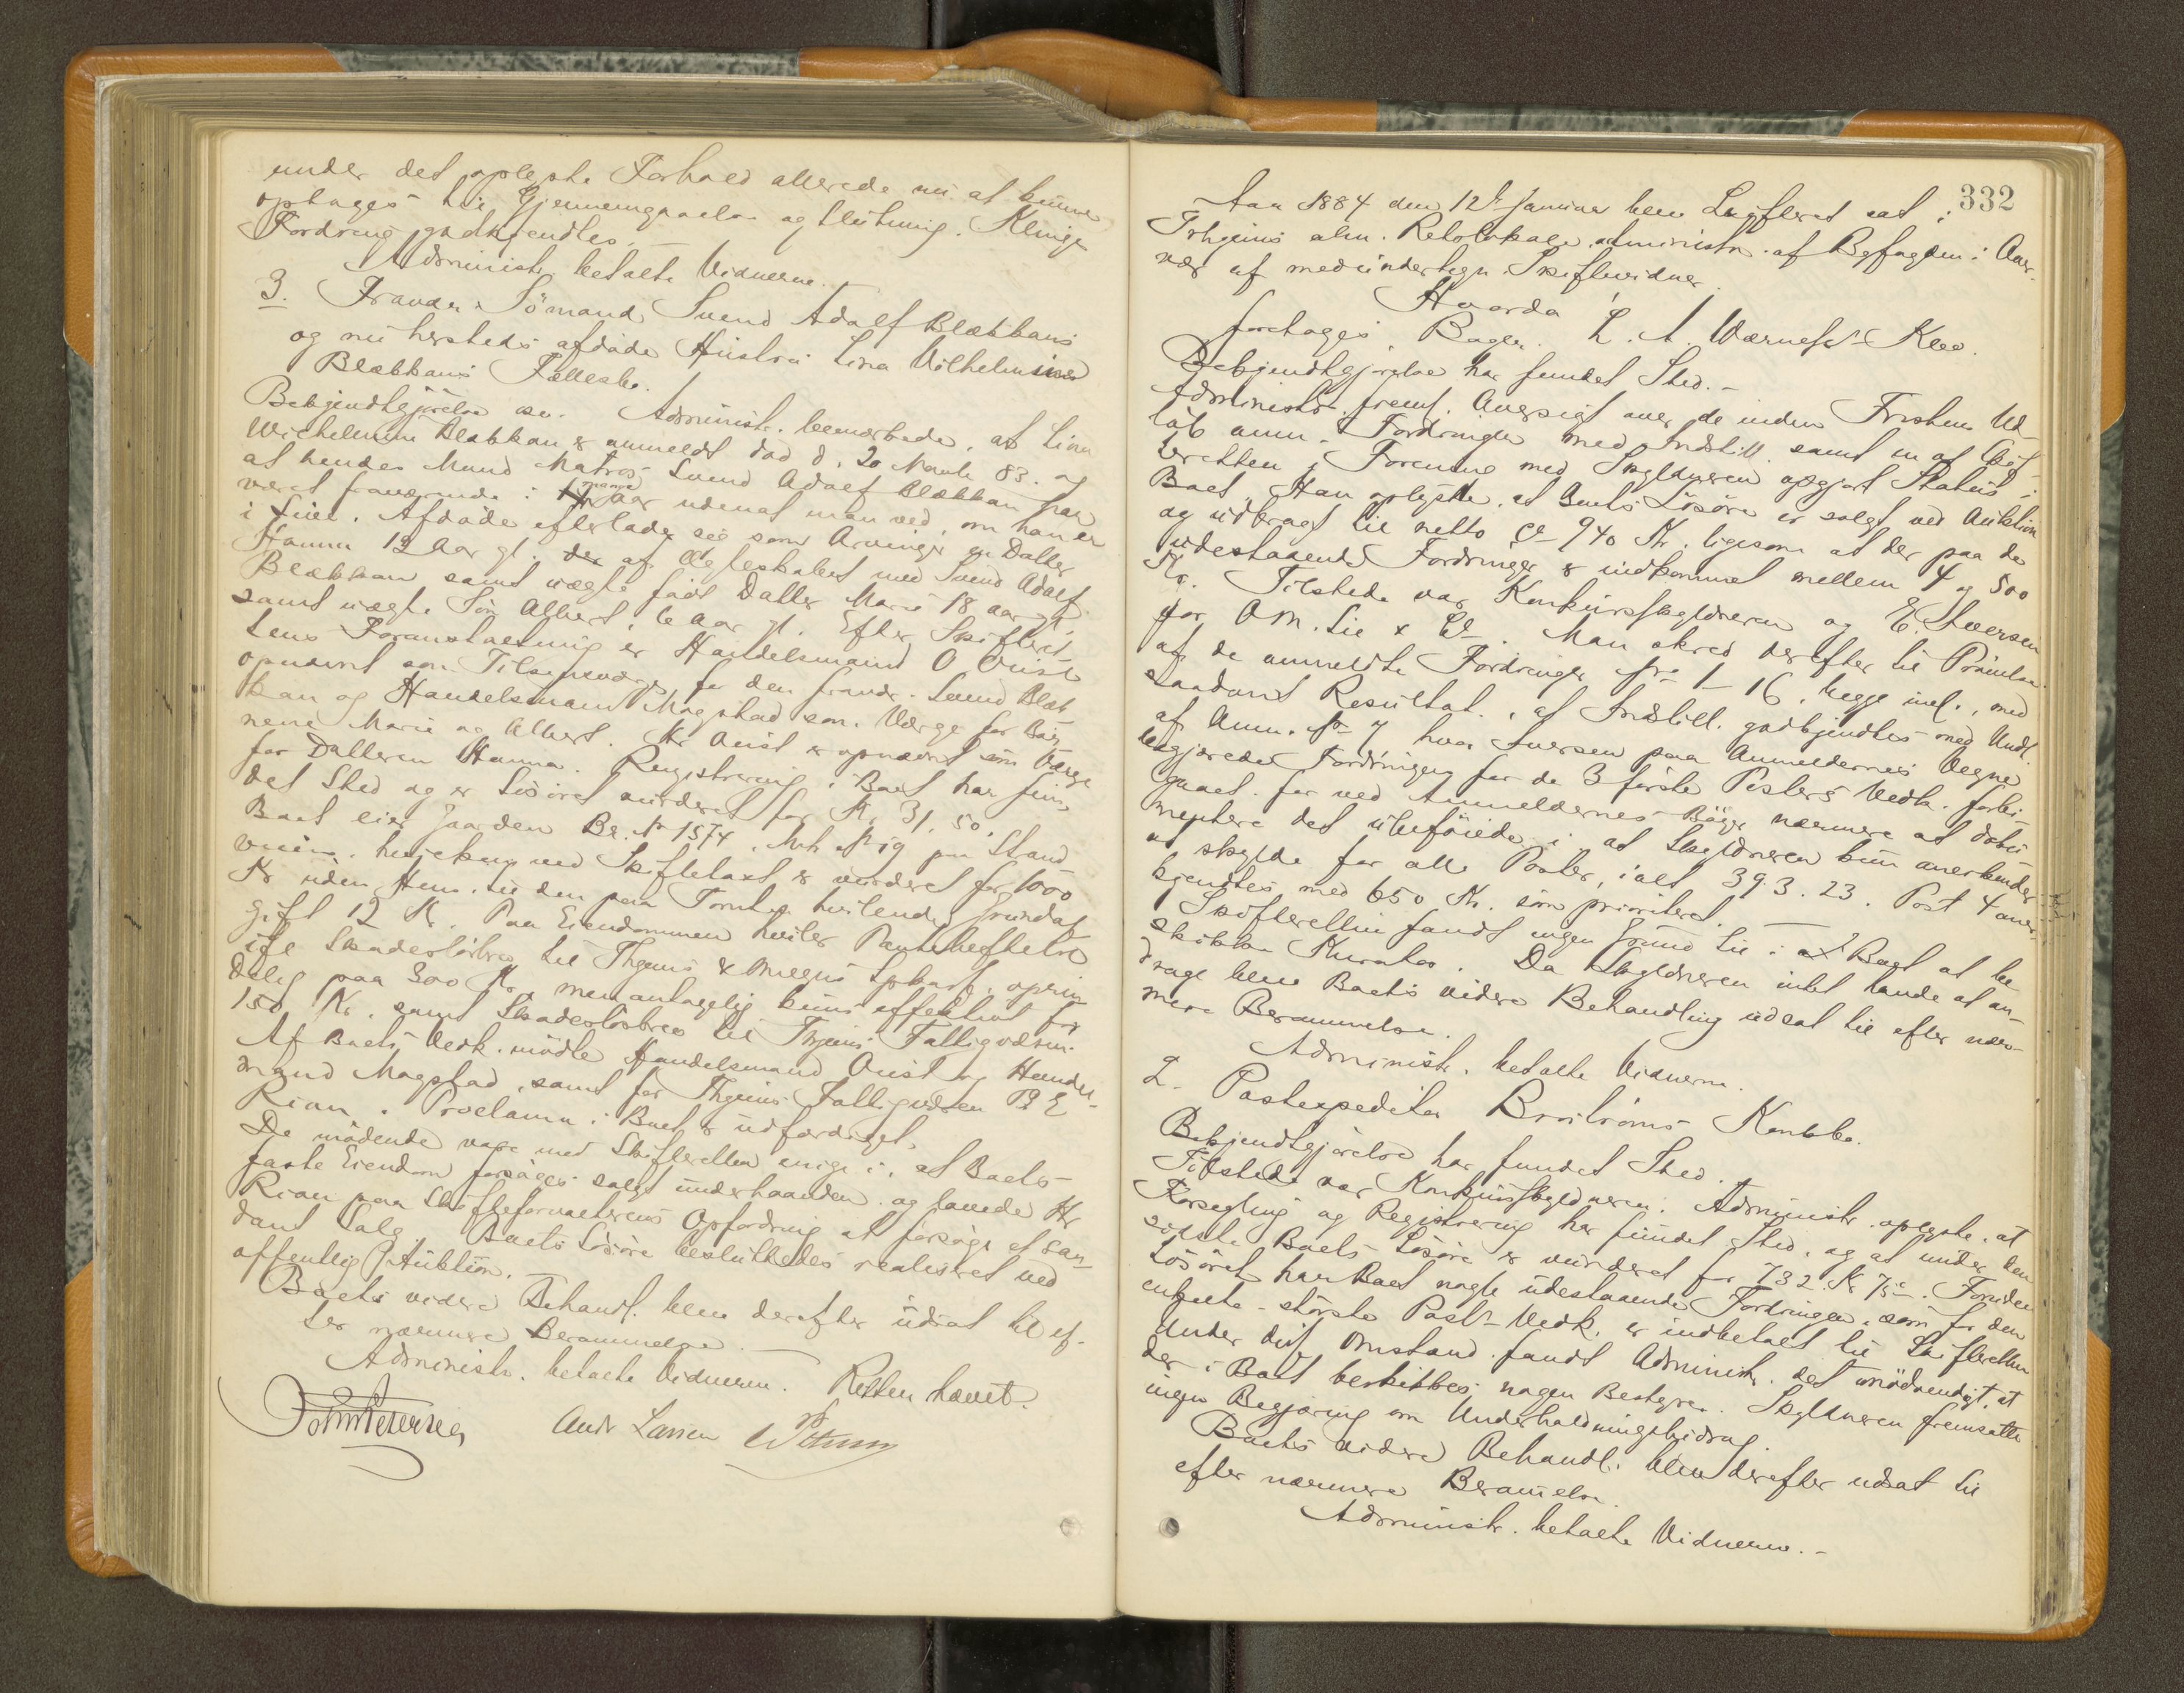 under det oplyste Forhold allerede nu at kunne
optages til Gjennemgaaelse og Slutning. Klinges
Fordring godkjendtes. —
Administr. betalte Vidnerne.
3. Fravær. Sömand Svend Adolf Blækkans
og nu hersteds afdöde Hustru Lina Vilhelmines
Blækkans Fællesbo.
Bekjendtgjörelse osv. Administr. bemærkede, at Lina
Wilhelmine Blækkan er anmeldt död d. 20 Marts 83. og
at hendes Mand Matros Svend Adolf Blækkan har
været fraværende i mange Aar uden at man ved, om han er
i Live. Afdöde efterlader sig som Arvinger en Datter
Hanna 12 Aar gl. af Ægteskabet med Svend Adolf
Blækkan samt uægte födt Datter Marie 18 Aar gl.
samt uægte Sön Albert, 6 Aar gl. Efter Skifteret-
tens Foranstaltning er Handelsmand O. Quist
opnævnt som Tilsynsværge for den fravær. Svend Blæk-
kan og Handelsmand Magstad som Værge for Bör-
nene Marie og Albert. Hr Quist er opnævnt som Værge
for Datteren Hanna. Registrering i Boet har fun-
det Sted og er Lösöret vurderet for Kr. 31.50.
Boet eier Gaarden Br. № 1574. Mt. № 19 paa Stand
veien, hvilken ved Skiftetaxt er vurderet for 1000
Kr uden Hens. til den paa Tomten hvilende Grundaf-
gift 12 Kr. Paa Eiendommen hviler Pantehæftelse
ifl Skadeslösbrev til Thjems & Omegns Spbank. oprin-
delig paa 300 Kr, men antagelig kuns effektivt for
150 Kr. samt Skadeslösbrev til Thjems Fattigvæsen.
Af Boets Vedk. mödte Handelsmand Quist og Handels-
mand Magstad, samt for Thjems Fattigvæsen P. E.
Rian. Proclama i Boet er udfærdiget.
De mödende vare med Skifteretten enige i, at Boets
faste Eiendom forsöges solgt underhaanden og lovede Hr
Rian paa Skifteforvalterens Opfordring at forsöge et saa-
dant Salg. Boets Lösöre besluttedes realiseret ved
offentlig Auktion.
Boets videre Behandl. blev derefter udsat til ef-
ter nærmere Berammelse.
Administr. betalte Vidnerne. Retten hævet.
Andr Larsen
332
Aar 1884 den 12te Januar blev Skifteret sat i
Trhjems alm. Retslokale administr. af Byfogden i Over-
vær af medundertegn. Skiftevidner.
Hvorda
foretoges Bager L. A. Værnes's Kbo.
Bekjendtgjörelse har fundet Sted. -
Administr. freml. Oversigt over de inden Fristens Ud-
löb anm. Fordringer med Indstill. samt en af Skif-
teretten i Forening med Skyldneren opgjort Status i
Boet. Han oplyste, at Boets Lösöre er solgt ved Auktion
og udbragt til netto ca 940 Kr. ligesom at der paa de
udestaaende Fordringer er indkommet mellem 4 og 500
Kr. Tilstede var Konkursskyldneren og E. Iversen
for O. M. Lie & Co. Man skred derefter til Prövelse
af de anmeldte Fordringer № 1 — 16, begge incl., med
saadant Resultat, at Indstill. godkjendtes med Undt.
af Anm. № 7 hvor Iversen paa Anmeldernes Vegne
begjærede Fordringen for de 3 förste Posters Vedk. forbi-
gaaet for ved Anmeldernes Böger nærmere at doku-
mentere det ubeföiede i, at Skyldneren kun anerkjender
at skylde for alle Poster, ialt 393.23. Post 4 aner-
kjendtes med 650 Kr. som prioriteret. —
Skifteretten fandt ingen Grund til i Boet at be
skikke Kurator. Da Skyldneren intet havde at an-
drage blev Boets videre Behandling udsat til efter nær-
mere Berammelse.
Administr. betalte Vidnerne.
2. Postexpeditör Broströms Konkbo.
Bekjendtgjörelse har fundet Sted.
Tilstede var Konkursskyldneren. Administr. oplyste, at
Forsegling og Registrering har fundet Sted, og at under den
sidste Boets Lösöre er vurderet for 732 Kr 75 ö. Foruden
Lösöret har Boet nogle udestaaende Fordringer, som for den
enkelte störste Posts Vedk. er indbetalt til Skifteretten
Under diss Omstænd. fandt Administr. det unödvendigt, at
der i Boet beskikkes nogen Bestyrer. Skyldneren fremsatte
ingen Begjæring om Underholdningsbidrag.
Boets videre Behandl. blev derefter udsat til
efter nærmere Beramelse.
Administr. betalte Vidnerne. -